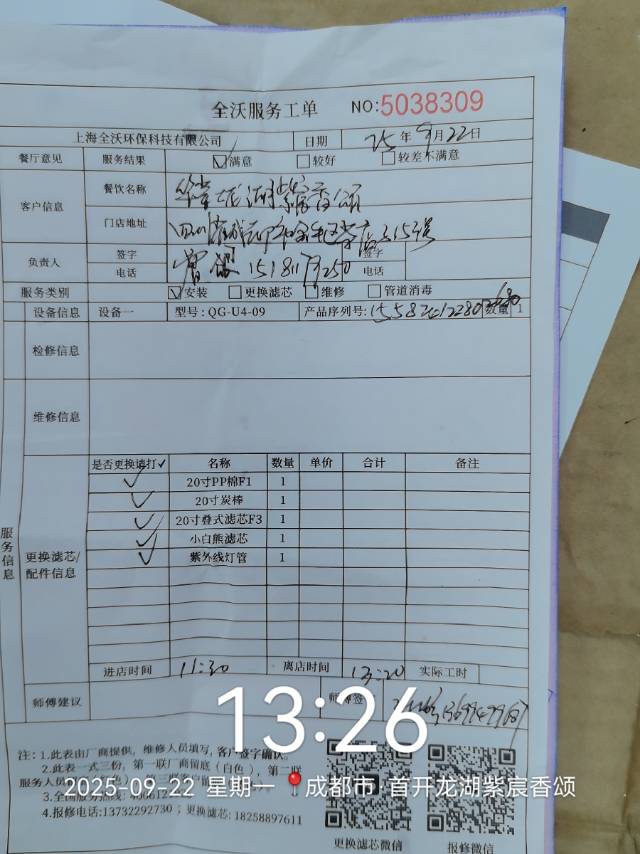 全沃服务工单 NO:5038309
上海全沃环保科技有限公司 日期 25年9月22日
餐厅意见 服务结果 ☑满意 □较好 □较差不满意
客户信息 餐饮名称 龙湖紫宸香颂
门店地址
负责人 签字 签字
电话 电话
服务类别 ☑安装 □更换滤芯 □维修 □管道消毒
设备信息 设备一 型号:QG-U4-09 产品序列号: 数量 1
检修信息
维修信息
服务信息
更换滤芯/配件信息
是否更换请打✓ 名称 数量 单价 合计 备注
✓ 20寸PP棉F1 1
✓ 20寸炭棒 1
✓ 20寸叠式滤芯F3 1
✓ 小白熊滤芯 1
✓ 紫外线灯管 1
进店时间 11:30 离店时间 13:20 实际工时
师傅建议
13:26
注:1.此表由厂商提供,维修人员填写,客户签字确认。
2.此表一式三份,第一联厂商留底(白色),第二联
服务人员
2025-09-22 星期一 成都市·首开龙湖紫宸香颂
3.全国服务热线:
4.报修电话:13732292730;更换滤芯:18258897611
更换滤芯微信 报修微信